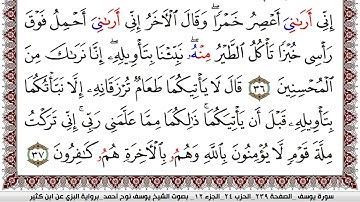 إِنِّيَ أَرَىٰنِيَ أَعْصِرُ خَمْرًا ۖ وَقَالَ الْآخَرُ إِنِّيَ أَرَىٰنِيَ أَحْمِلُ فَوْقَ
رَأْسِي خُبْزًا تَأْكُلُ الطَّيْرُ مِنْهُۥ ۖ نَبِّئْنَا بِتَأْوِيلِهِۦ ۖ إِنَّا نَرَىٰكَ مِنَ
الْمُحْسِنِينَ ٣٦ قَالَ لَا يَأْتِيكُمَا طَعَامٌ تُرْزَقَانِهِۦ إِلَّا نَبَّأْتُكُمَا
بِتَأْوِيلِهِۦ قَبْلَ أَن يَأْتِيَكُمَا ۚ ذَٰلِكُمَا مِمَّا عَلَّمَنِي رَبِّي ۚ إِنِّي تَرَكْتُ
مِلَّةَ قَوْمٍ لَّا يُؤْمِنُونَ بِاللَّهِ وَهُمُۥ بِالْآخِرَةِ هُمُۥ كَٰفِرُونَ ٣٧
سورة يوسف _ الصفحة ٢٣٩ _ الحزب ٢٤ _ الجزء ١٢ _ بصوت الشيخ يوسف نوح أحمد _ برواية البزي عن ابن كثير